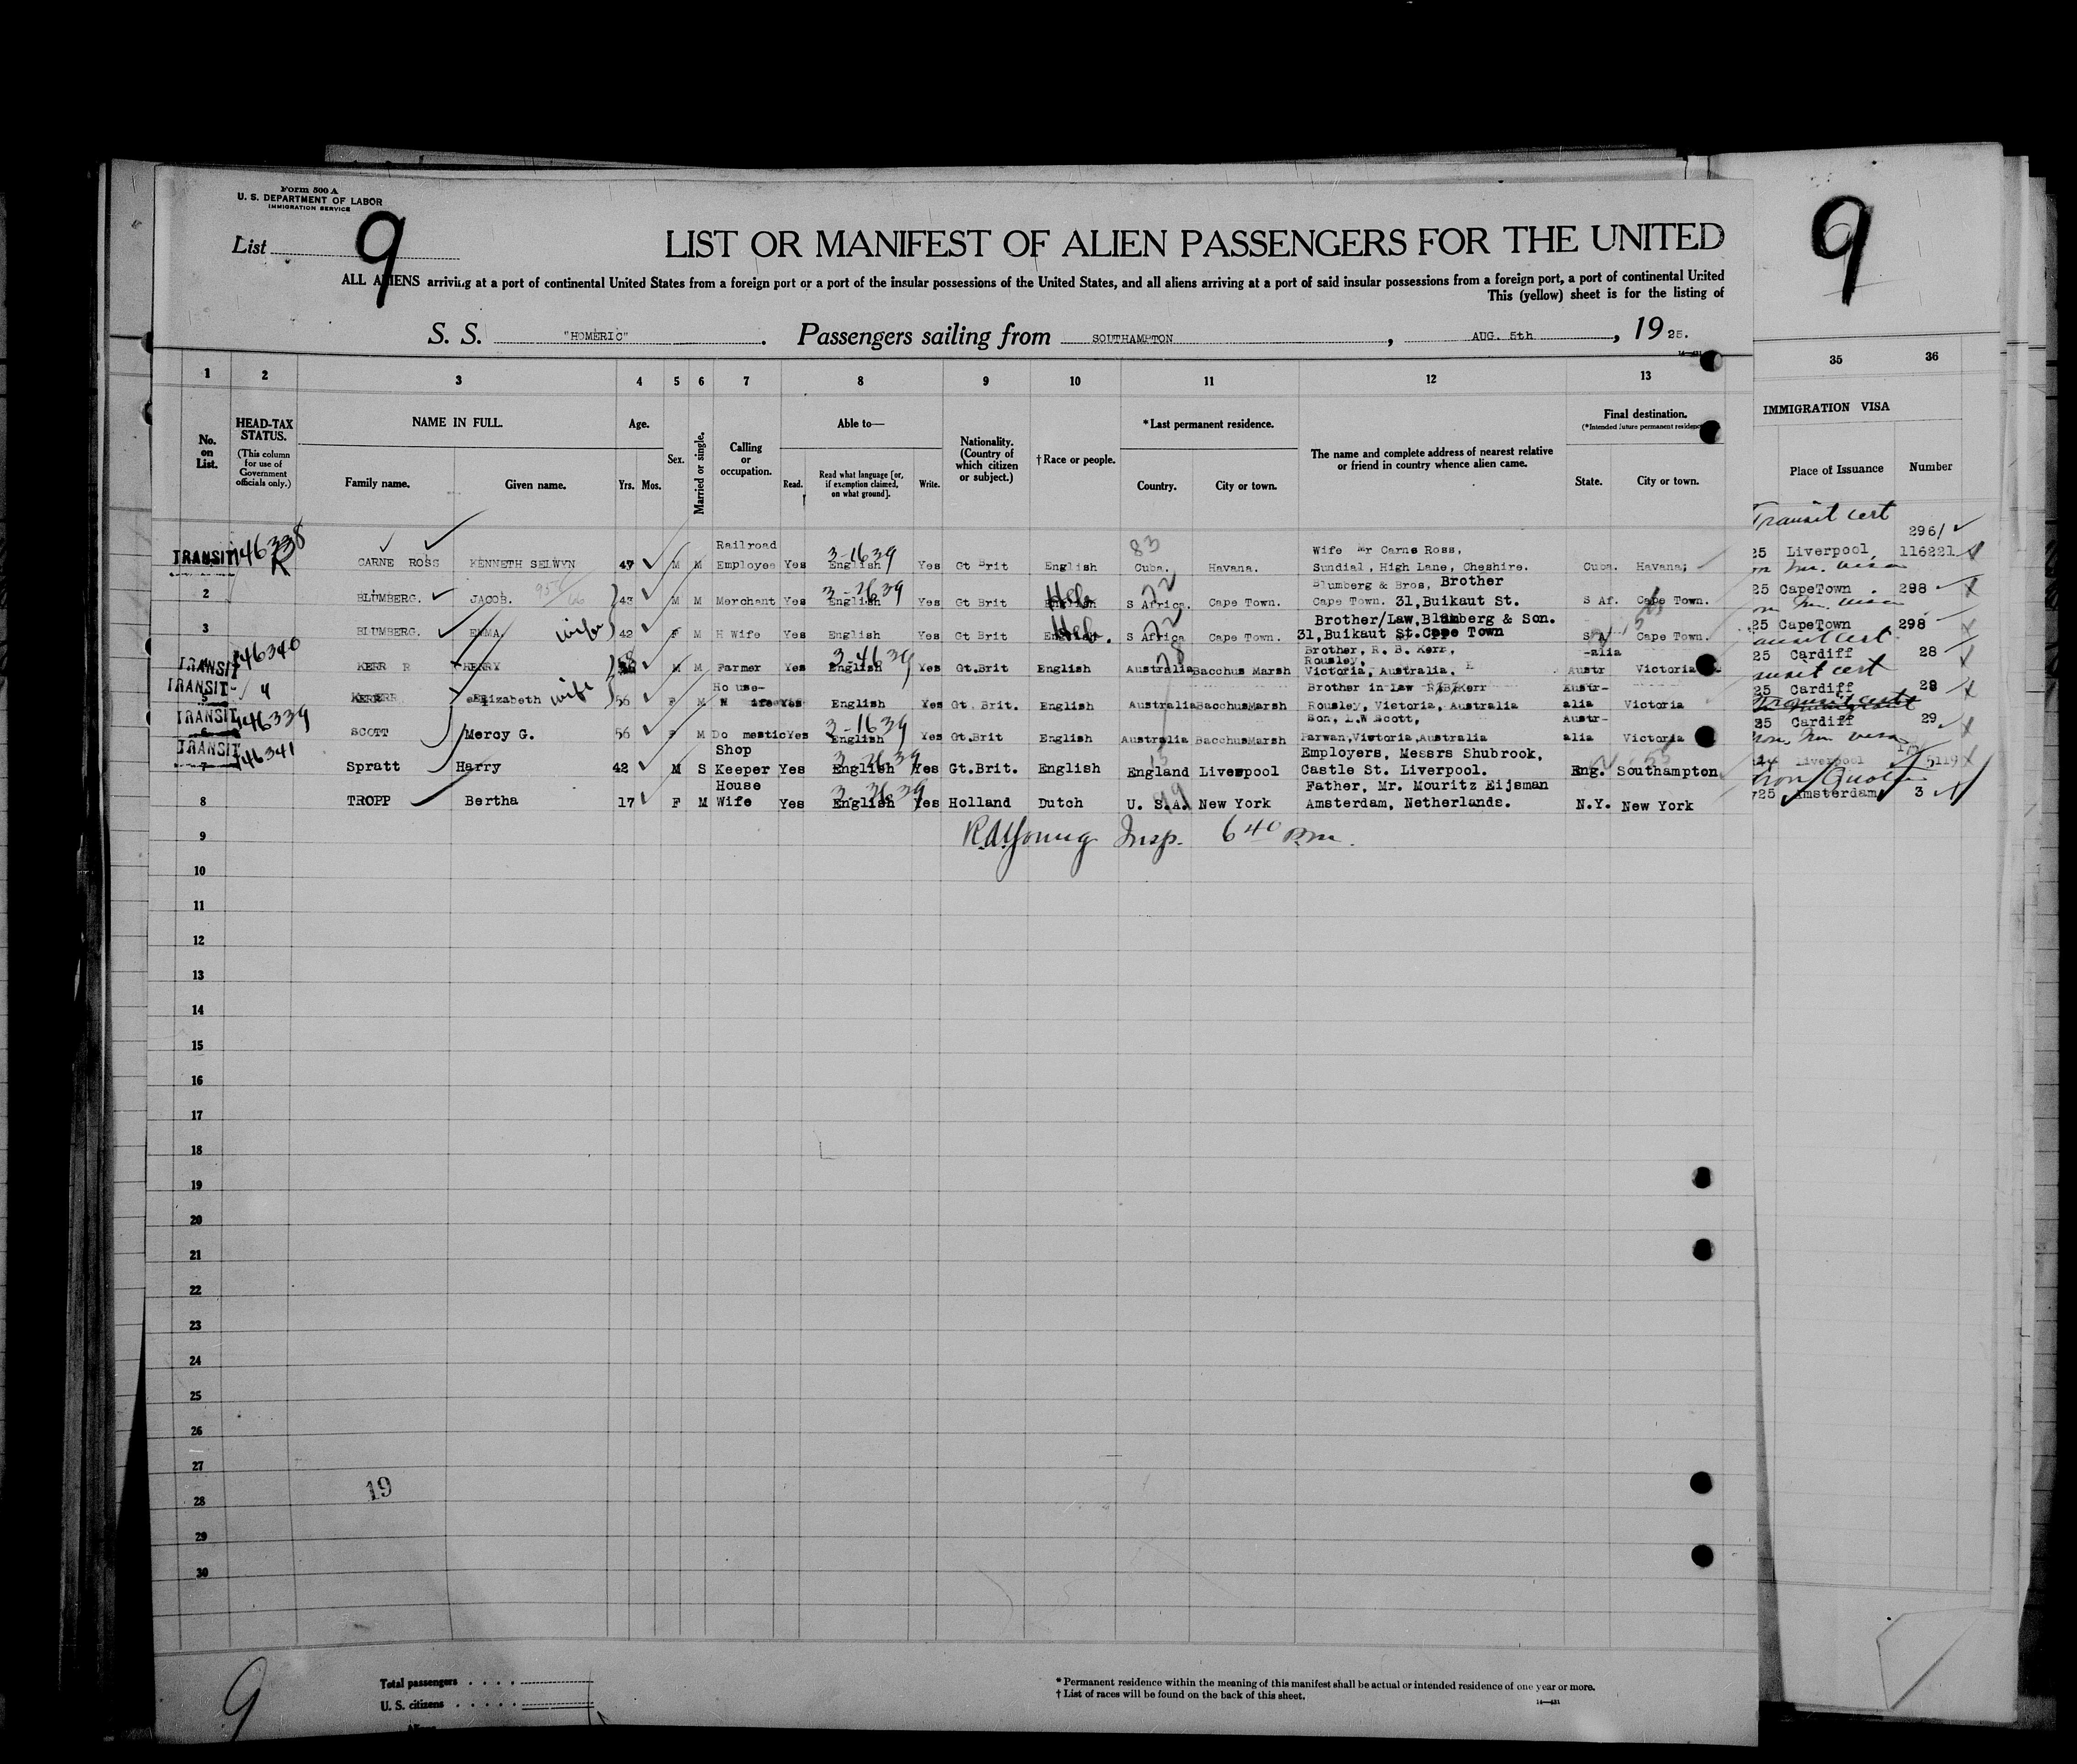 Form 500 A
U. S. DEPARTMENT OF LABOR
IMMIGRATION SERVICE
List 9
9
LIST OR MANIFEST OF ALIEN PASSENGERS FOR THE UNITED
ALL ALIENS arriving at a port of continental United States from a foreign port or a port of the insular possessions of the United States, and all aliens arriving at a port of said insular possessions from a foreign port, a port of continental United
This (yellow) sheet is for the listing of
S. S. "HOMERIC". Passengers sailing from SOUTHAMPTON, AUG. 5th, 1925.
1 2 3 4 5 6 7 8 9 10 11 12 13 35 36
No. on List.
HEAD-TAX STATUS.
(This column for use of Government officials only.)
NAME IN FULL.
Family name. Given name.
Age.
Yrs. Mos.
Sex.
Married or single.
Calling or occupation.
Able to—
Read. Read what language [or, if exemption claimed, on what ground]. Write.
Nationality. (Country of which citizen or subject.)
†Race or people.
*Last permanent residence.
Country. City or town.
The name and complete address of nearest relative or friend in country whence alien came.
Final destination.
(*Intended future permanent residence
State. City or town.
IMMIGRATION VISA
Place of Issuance Number
TRANSIT 146338 CARNE ROSS KENNETH SELWYN 47 M M Railroad Employee Yes 3-1639 English Yes Gt Brit English 83 Cuba. Havana. Wife Mr Carne Ross, Sundial, High Lane, Cheshire. Cuba. Havana; Transit cert 25 Liverpool, 296/ 116221
2 BLUMBERG. JACOB. 43 M M Merchant Yes 3-2639 English Yes Gt Brit English Heb S Africa. Cape Town. Blumberg & Bros, Brother Cape Town. 31,Buikaut St. S Af. Cape Town. 25 CapeTown 298
3 BLUMBERG. EMMA. wife 42 F M H Wife Yes English Yes Gt Brit English Heb. S Africa Cape Town. Brother/Law,Blumberg & Son. 31,Buikaut St.Cape Town Cape Town. 25 CapeTown 298
TRANSIT 146340 KERR R HENRY M M Farmer Yes 3-4639 English Yes Gt.Brit English Australia Bacchus Marsh Brother, R. B. Kerr, Rousley, Victoria, Australia. -alia Austr Victoria 25 Cardiff 28
TRANSIT- 4 KERR Elizabeth wife 56 F M House- wife Yes English Yes Gt. Brit. English Australia BacchusMarsh Brother in law R.B.Kerr Rousley, Victoria, Australia Austr- alia Victoria 25 Cardiff 28
TRANSIT 146339 SCOTT Mercy G. 56 F M Do mestic Yes 3-1639 English Yes Gt.Brit English Australia BacchusMarsh Son, L.W Scott, Parwan,Victoria,Australia Austr- alia Victoria 25 Cardiff 29
TRANSIT 146341 7 Spratt Harry 42 M S Shop Keeper Yes English Yes Gt.Brit. English England Liverpool Employers, Messrs Shubrook, Castle St. Liverpool. Eng. Southampton Liverpool 5119
8 TROPP Bertha 17 F M House Wife Yes English Yes Holland Dutch U. S.A. New York Father, Mr. Mouritz Eijsman Amsterdam, Netherlands. N.Y. New York 25 Amsterdam 3
9 Insp. 6 40 pm.
10
11
12
13
14
15
16
17
18
19
20
21
22
23
24
25
26
27
19
28
29
30
9
Total passengers
U. S. citizens
* Permanent residence within the meaning of this manifest shall be actual or intended residence of one year or more.
† List of races will be found on the back of this sheet.